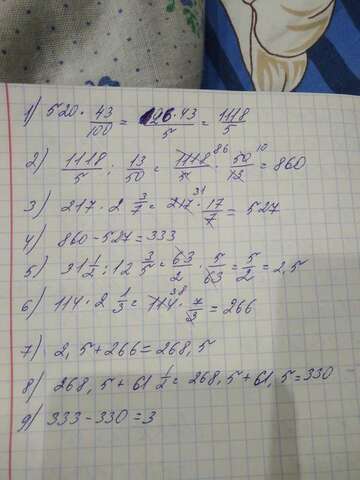 1) 520 · 43/100 = 26·43/5 = 1118/5
2) 1118/5 : 13/50 = 1118 86/5 · 50 10/13 = 860
3) 217 · 2 3/7 = 217 31 · 17/7 = 527
4) 860 - 527 = 333
5) 31 1/2 : 12 3/5 = 63/2 · 5/63 = 5/2 = 2,5
6) 114 · 2 1/3 = 114 38 · 7/3 = 266
7) 2,5 + 266 = 268,5
8) 268,5 + 61 1/2 = 268,5 + 61,5 = 330
9) 333 - 330 = 3